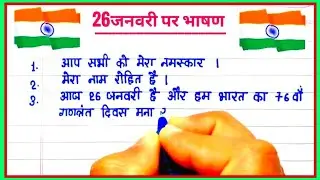 26जनवरी पर भाषण
1. आप सभी को मेरा नमस्कार ।
2. मेरा नाम रोहित है ।
3. आज 26 जनवरी है और हम भारत का 76 वाँ
गणतंत्र दिवस मना